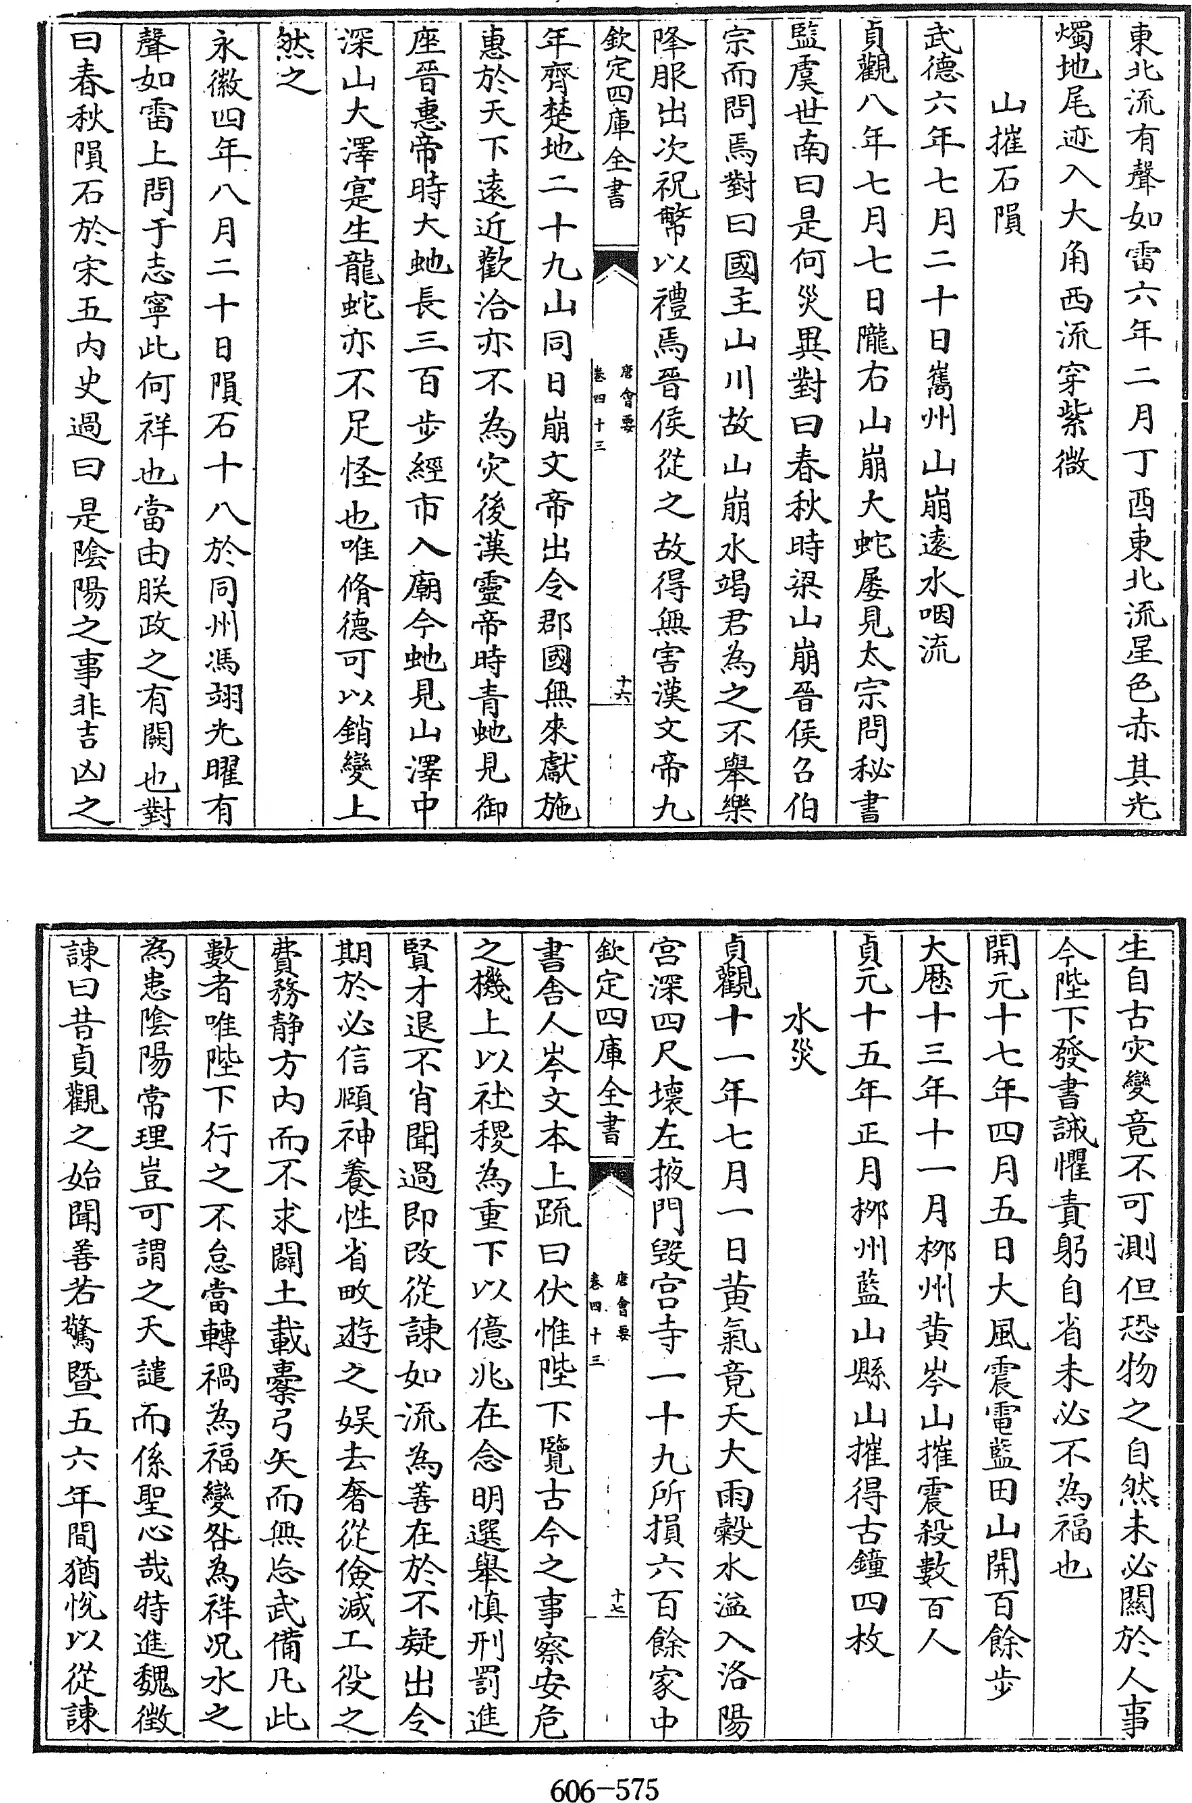 東北流有聲如雷六年二月丁酉東北流星色赤其光
燭地尾迹入大角西流穿紫微
山摧石隕
武德六年七月二十日巂州山崩遠水咽流
貞觀八年七月七日隴右山崩大蛇屡見太宗問秘書
監虞世南曰是何災異對曰春秋時梁山崩晉侯召伯
宗而問焉對曰國主山川故山崩水竭君為之不舉樂
降服出次祝幣以禮焉晉侯從之故得無害漢文帝九
欽定四庫全書
唐會要
卷四十三
十六
年齊楚地二十九山同日崩文帝出令郡國無來獻施
惠於天下遠近歡洽亦不為灾後漢靈帝時青虵見御
座晉惠帝時大虵長三百步經市入廟今虵見山澤中
深山大澤寔生龍蛇亦不足怪也唯脩德可以銷變上
然之
永徽四年八月二十日隕石十八於同州馮翊光曜有
聲如雷上問于志寧此何祥也當由朕政之有闕也對
曰春秋隕石於宋五内史過曰是陰陽之事非吉凶之
生自古灾變竟不可測但恐物之自然未必關於人事
今陛下發書誡懼責躬自省未必不為福也
開元十七年四月五日大風震電藍田山開百餘步
大厯十三年十一月郴州黄岑山摧震殺數百人
貞元十五年正月郴州藍山縣山摧得古鐘四枚
水災
貞觀十一年七月一日黄氣竟天大雨穀水溢入洛陽
宫深四尺壞左掖門毁宫寺一十九所損六百餘家中
欽定四庫全書
唐會要
卷四十三
十七
書舍人岑文本上疏曰伏惟陛下覽古今之事察安危
之機上以社稷為重下以億兆在念明選舉慎刑罰進
賢才退不肖聞過即改從諫如流為善在於不疑出令
期於必信頤神養性省畋遊之娱去奢從儉減工役之
費務静方内而不求闢土載櫜弓矢而無忘武備凡此
數者唯陛下行之不怠當轉禍為福變咎為祥况水之
為患陰陽常理豈可謂之天譴而係聖心哉特進魏徵
諫曰昔貞觀之始聞善若驚暨五六年間猶悦以從諫
606-575